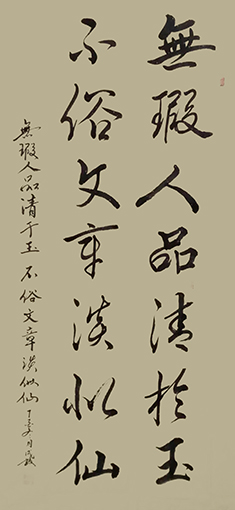 無瑕人品清於玉
不俗文章淡似仙
無瑕人品清于玉 不俗文章淡似仙 丁亥月